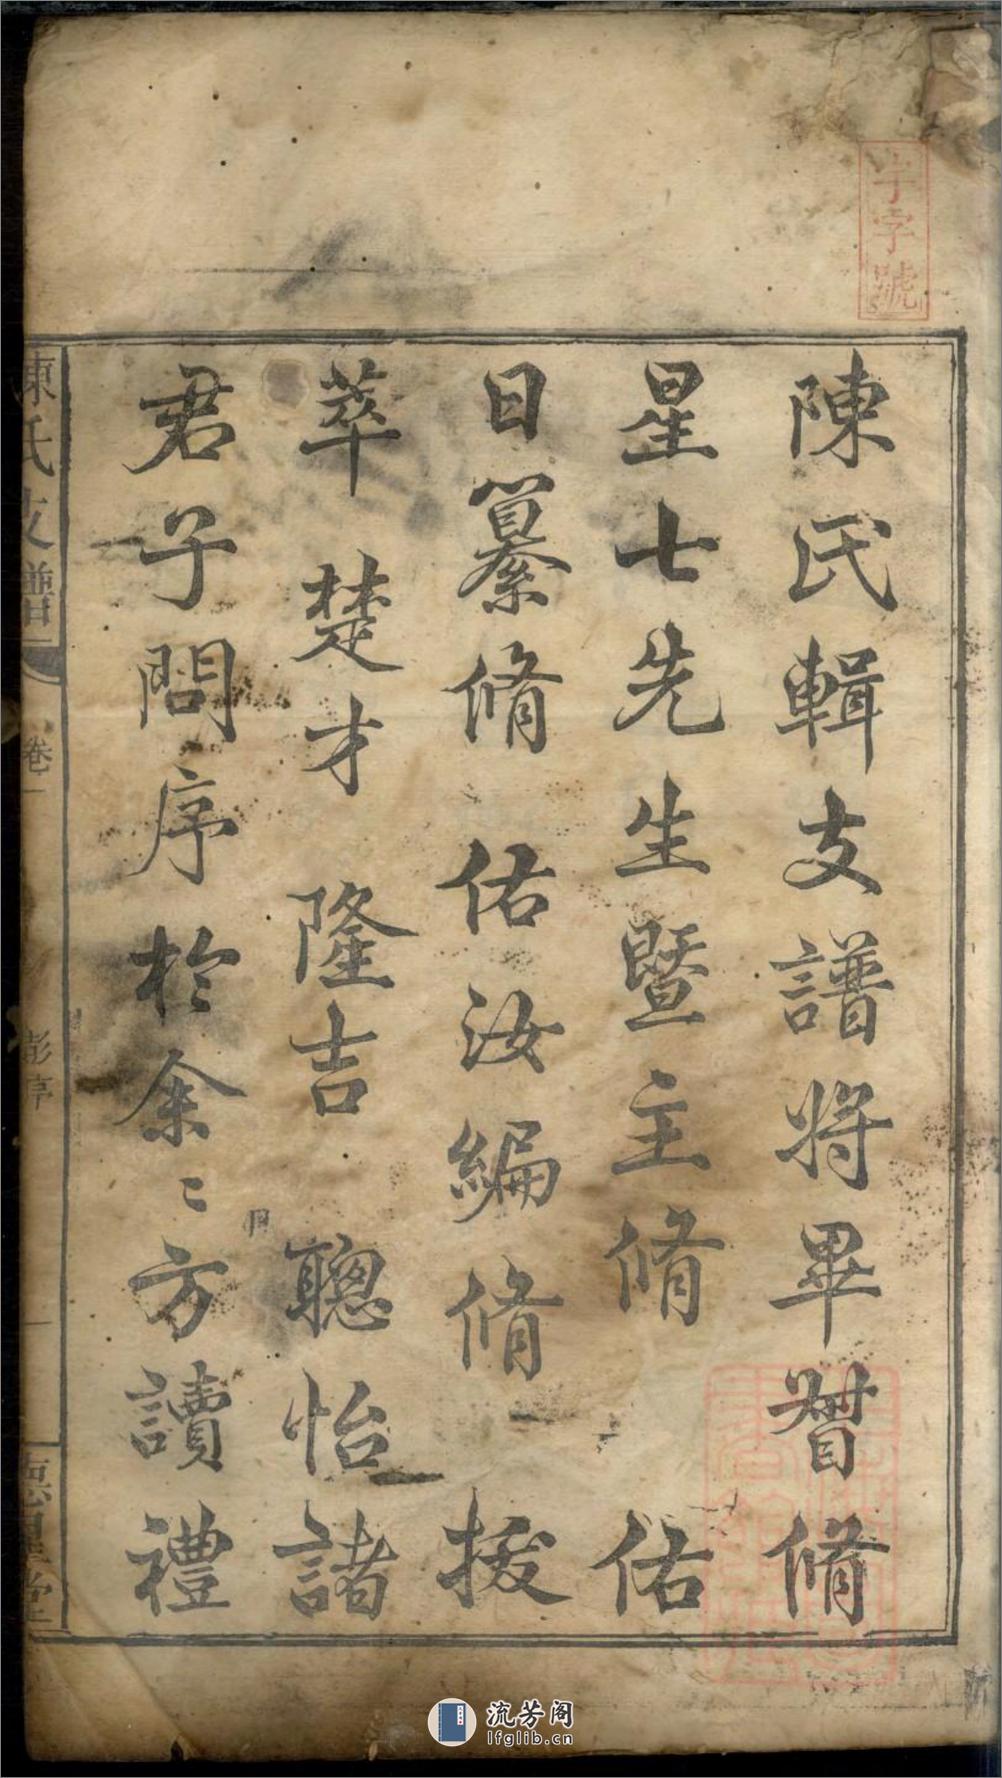 十字號
陳氏輯支譜將畢督脩
星七先生暨主脩　佑
日纂脩　佑汝編脩　拔
萃　楚才　隆吉　聰怡諸
君子問序於余〻方讀禮
陳氏支譜
卷一
彭序
一
德星堂
流芳阁
lfglib.cn